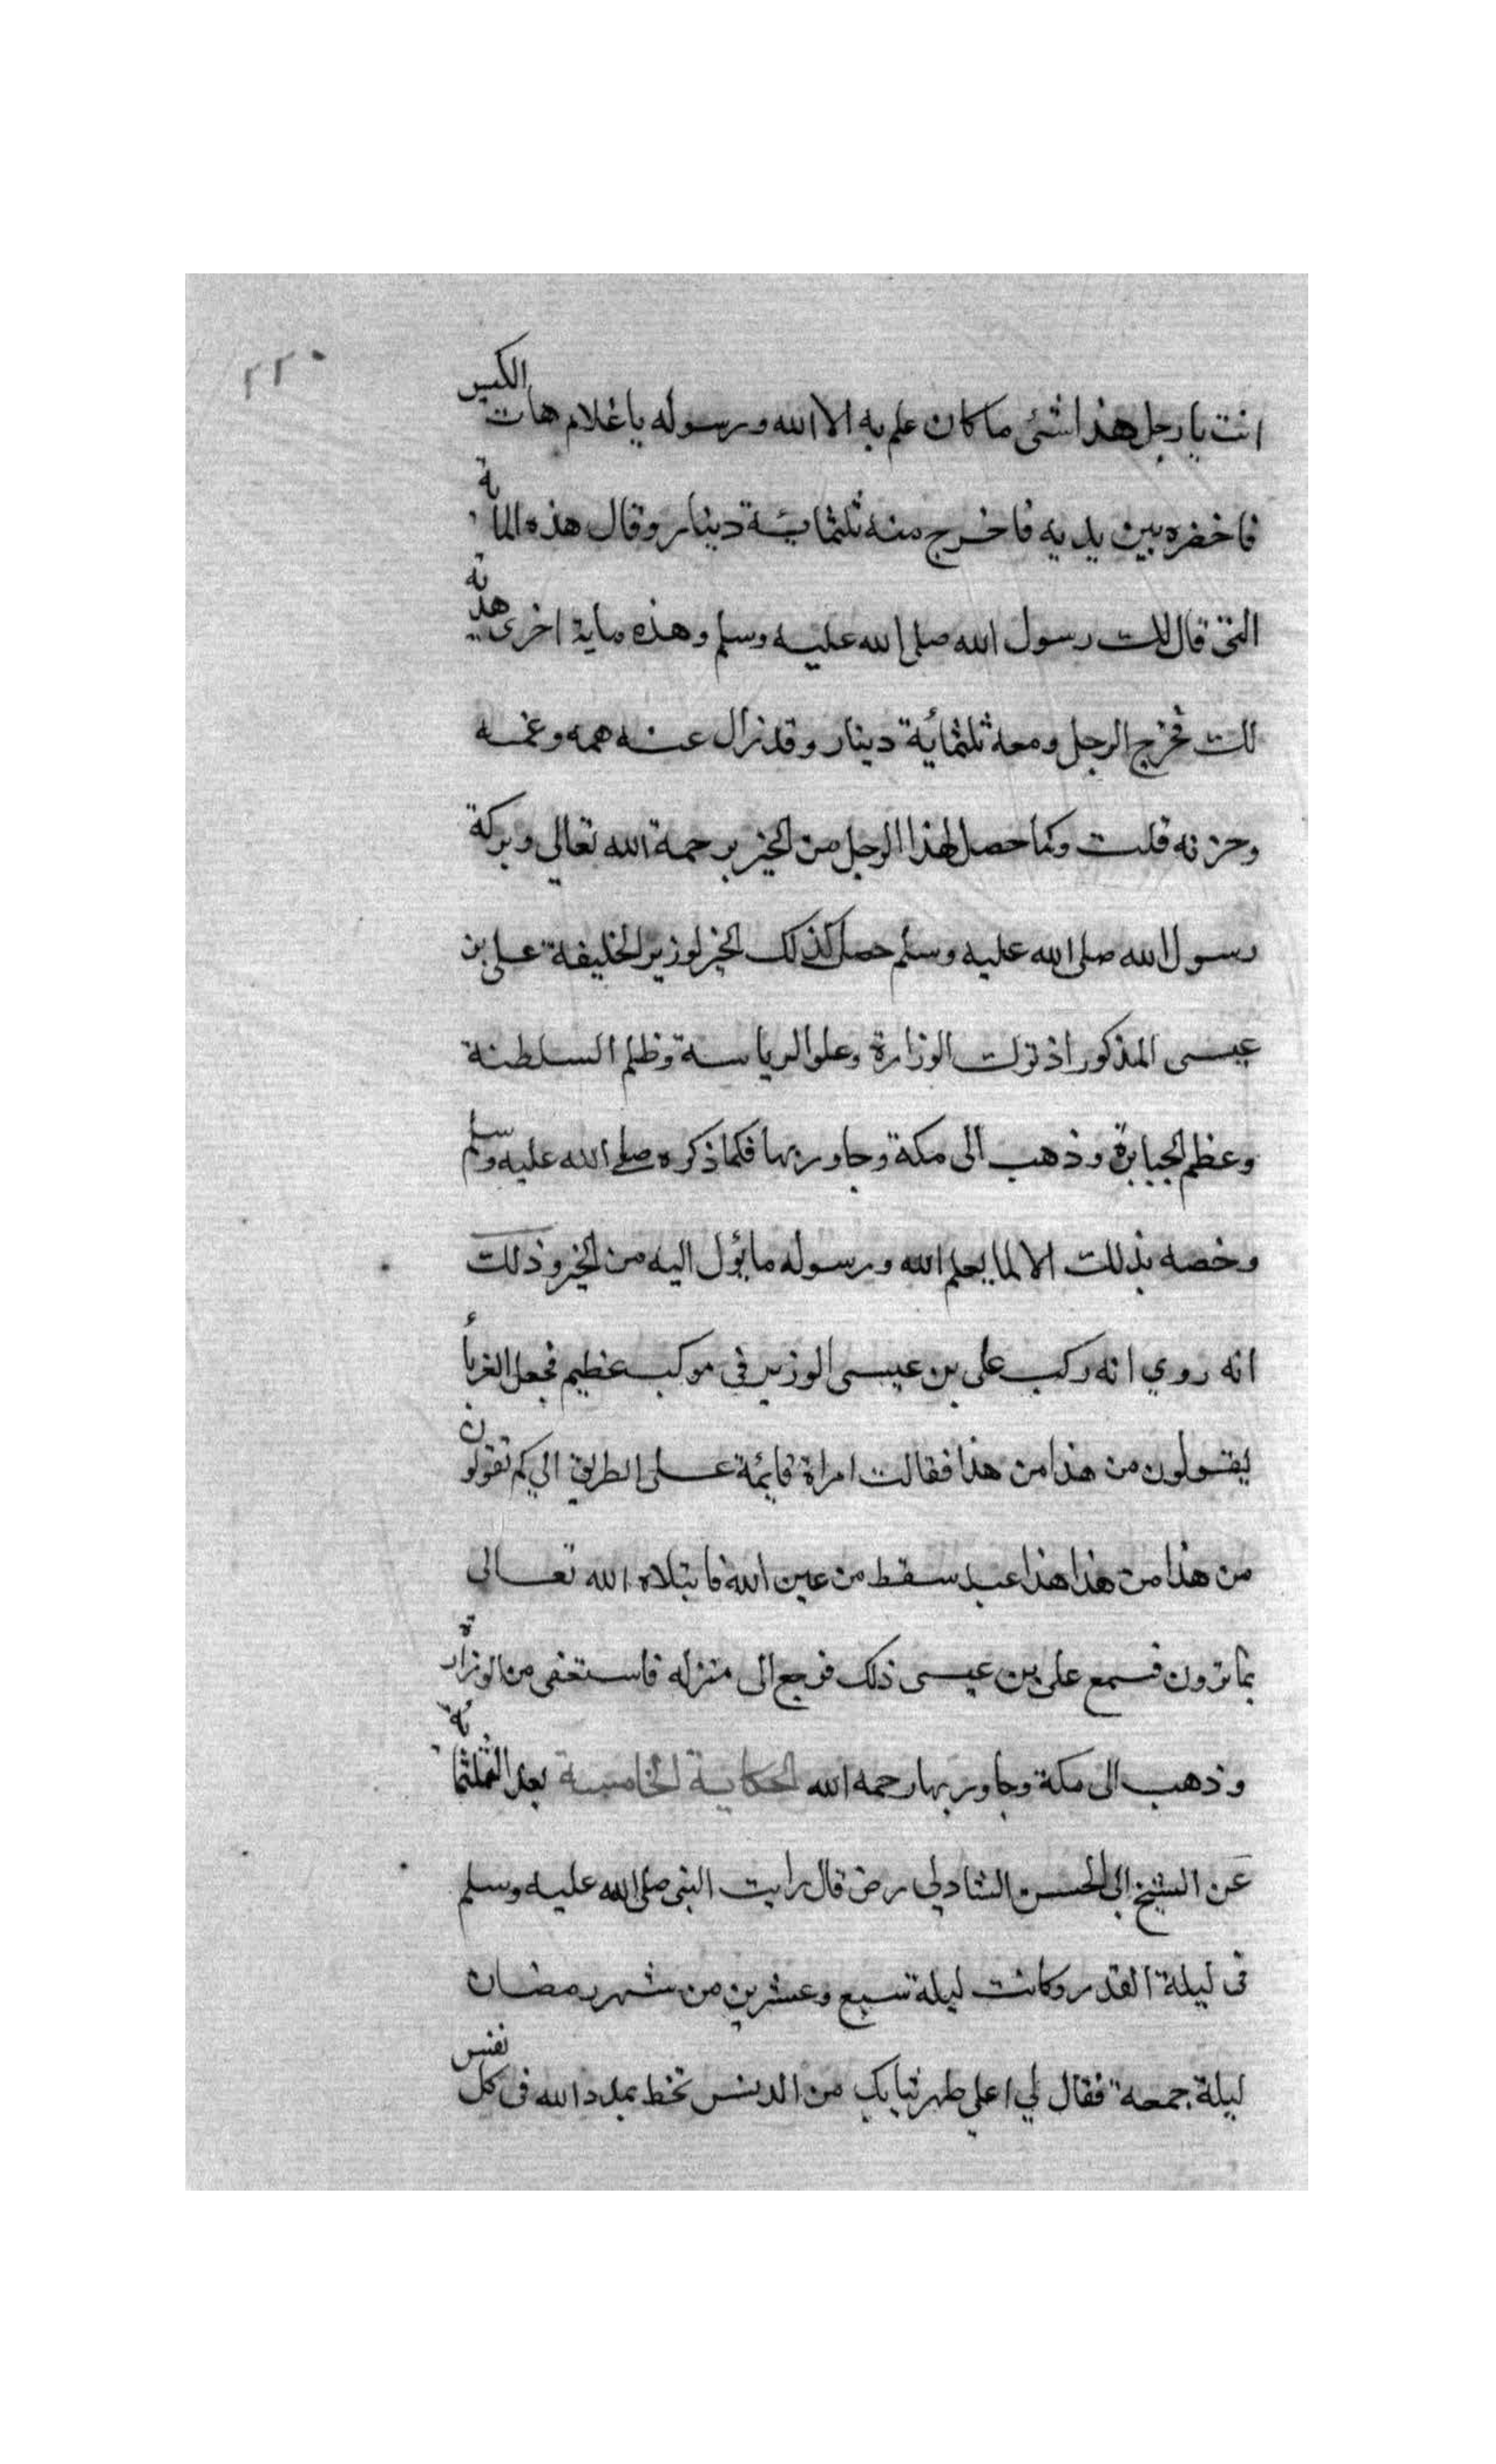 ٢٢٠
انت يا رجل هذا شئ ما كان علم به الا الله ورسوله يا غلام هات الكيس
فاحضره بين يديه فاخرج منه ثلثمائة دينار وقال هذه المائة
التى قال لك رسول الله صلى الله عليه وسلم وهذه ماية اخرى هدية
لك فخرج الرجل ومعه ثلثمائة دينار وقد زال عنه همه وغمه
وحزنه قلت وكما حصل لهذا الرجل من الخير برحمة الله تعالى وبركة
رسول الله صلى الله عليه وسلم حصل كذلك الخير لوزير الخليفة على بن
عيسى المذكور اذ ترك الوزارة وعلو الرياسة وظلم السلطنة
وعظم الجبابرة وذهب الى مكة وجاور بها فكما ذكره صلى الله عليه وسلم
وخصه بذلك الا لما يعلم الله ورسوله ما يؤل اليه من الخير وذلك
انه روي انه ركب على بن عيسى الوزير فى موكب عظيم فجعل الغرباء
يقولون من هذا من هذا فقالت امراة قايمة على الطريق الي كم تقولون
من هذا من هذا هذا عبد سقط من عين الله فابتلاه الله تعالى
بما ترون فسمع على بن عيسى ذلك فرجع الى منزله فاستعفى من الوزارة
وذهب الى مكة وجاور بها رحمه الله الحكاية الخامسة بعد الثلثماية
عن الشيخ ابي الحسن الشادلي رض قال رايت النبى صلى الله عليه وسلم
فى ليلة القدر وكانت ليلة سبع وعشرين من شهر رمضان
ليلة جمعة فقال لي اعلي طهر ثيابك من الدنس تحظ بمدد الله فى كل نفس